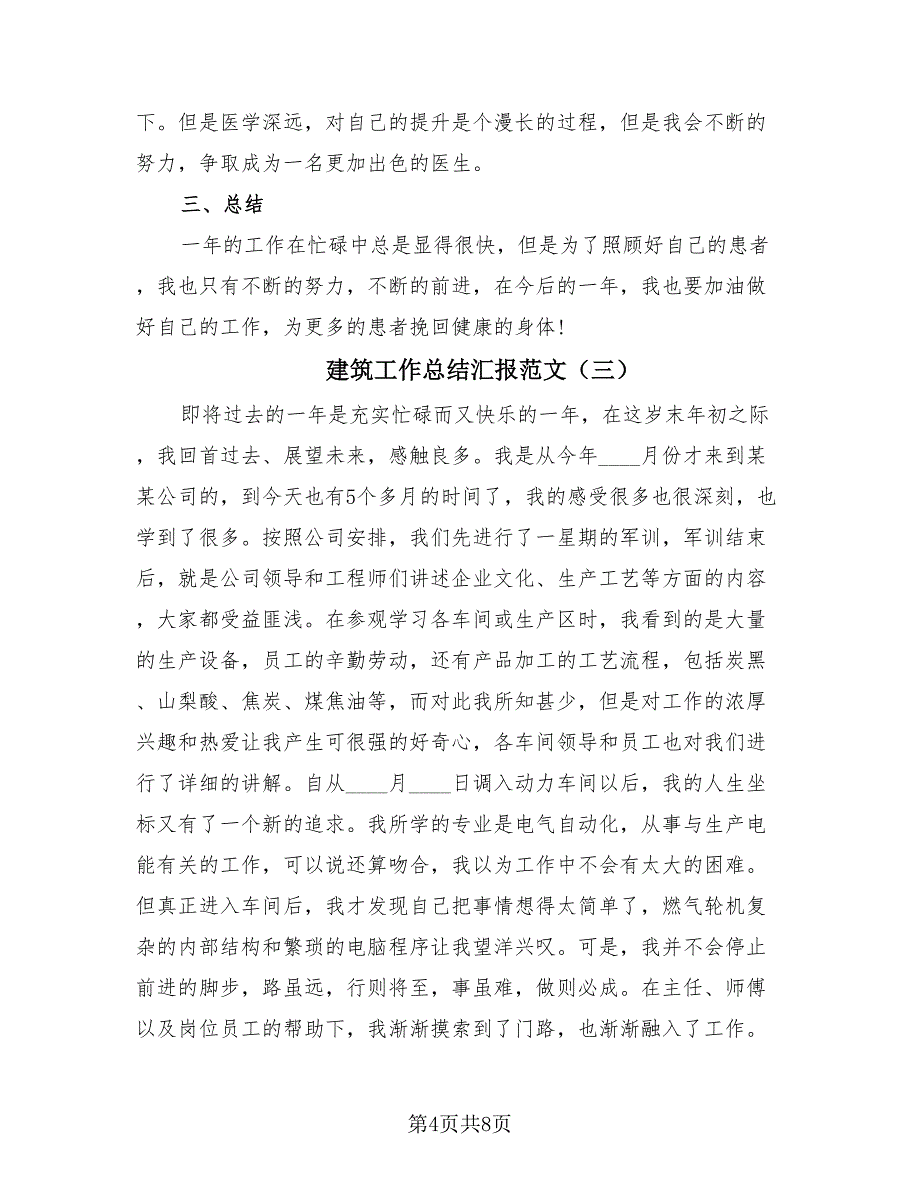 下。但是医学深远，对自己的提升是个漫长的过程，但是我会不断的
努力，争取成为一名更加出色的医生。
三、总结
一年的工作在忙碌中总是显得很快，但是为了照顾好自己的患者
，我也只有不断的努力，不断的前进，在今后的一年，我也要加油做
好自己的工作，为更多的患者挽回健康的身体!
建筑工作总结汇报范文（三）
即将过去的一年是充实忙碌而又快乐的一年，在这岁末年初之际
，我回首过去、展望未来，感触良多。我是从今年____月份才来到某
某公司的，到今天也有5个多月的时间了，我的感受很多也很深刻，也
学到了很多。按照公司安排，我们先进行了一星期的军训，军训结束
后，就是公司领导和工程师们讲述企业文化、生产工艺等方面的内容
，大家都受益匪浅。在参观学习各车间或生产区时，我看到的是大量
的生产设备，员工的辛勤劳动，还有产品加工的工艺流程，包括炭黑
、山梨酸、焦炭、煤焦油等，而对此我所知甚少，但是对工作的浓厚
兴趣和热爱让我产生可很强的好奇心，各车间领导和员工也对我们进
行了详细的讲解。自从____月____日调入动力车间以后，我的人生坐
标又有了一个新的追求。我所学的专业是电气自动化，从事与生产电
能有关的工作，可以说还算吻合，我以为工作中不会有太大的困难。
但真正进入车间后，我才发现自己把事情想得太简单了，燃气轮机复
杂的内部结构和繁琐的电脑程序让我望洋兴叹。可是，我并不会停止
前进的脚步，路虽远，行则将至，事虽难，做则必成。在主任、师傅
以及岗位员工的帮助下，我渐渐摸索到了门路，也渐渐融入了工作。
第4页共8页